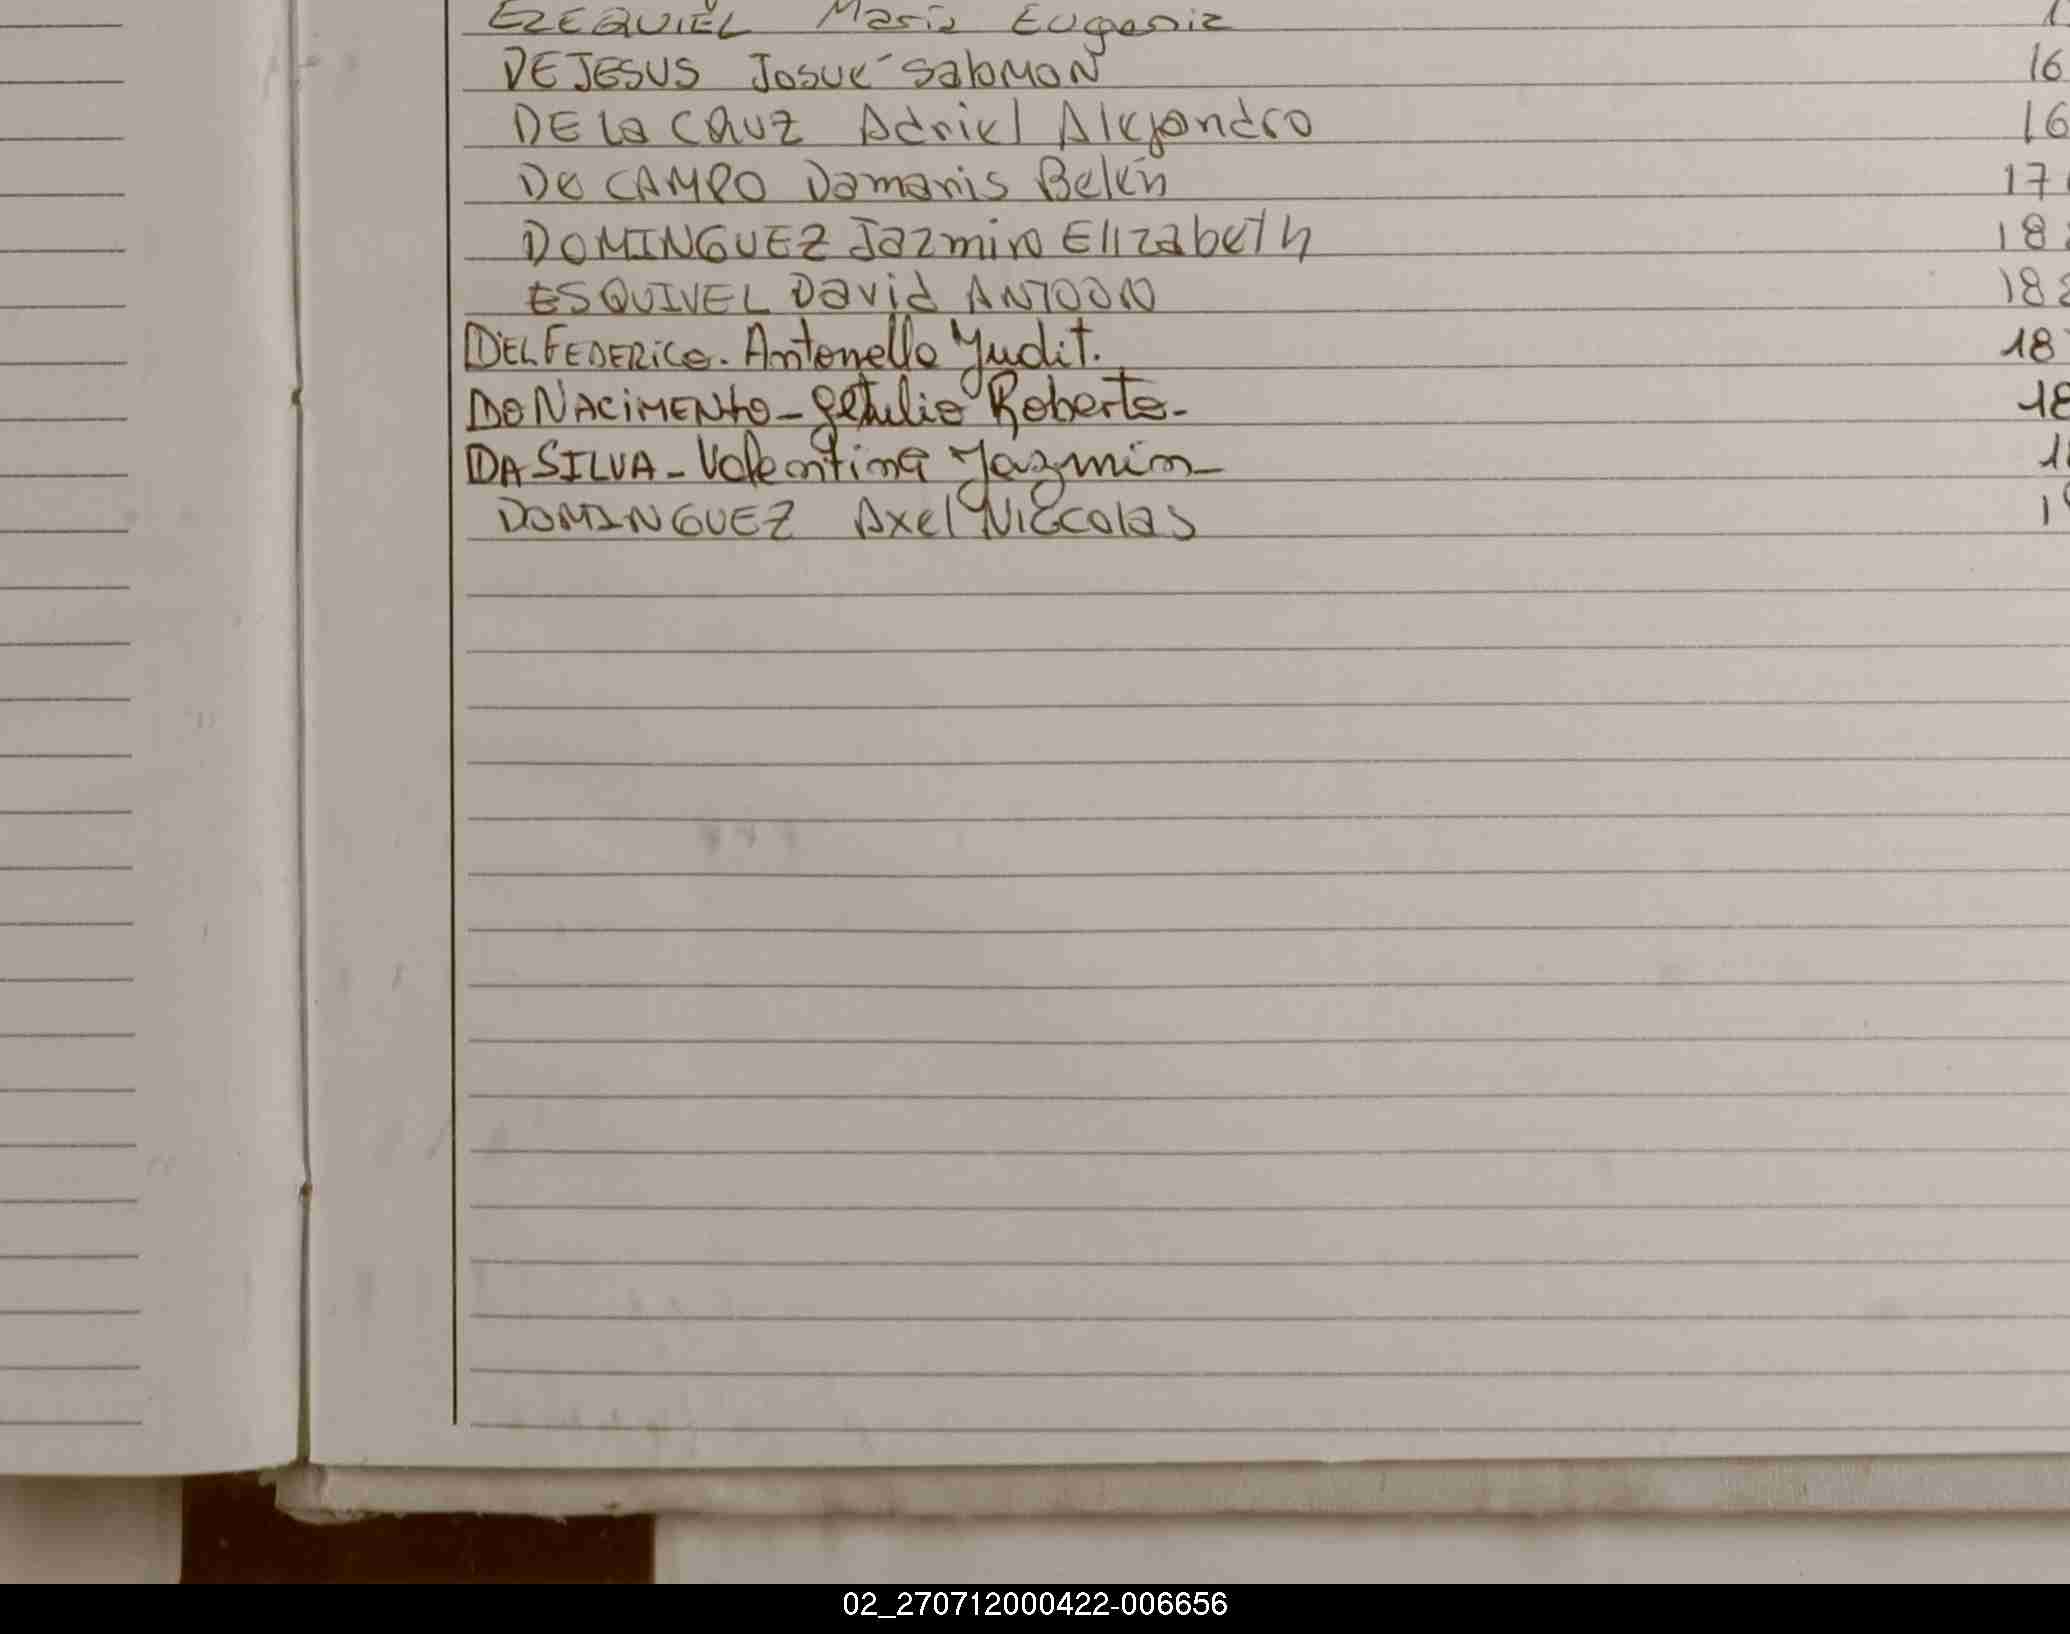 EZEQUIEL Maria Eugenia
DE JESUS Josué Salomon 16
DE La CRUZ Adriel Alejandro 16
DO CAMPO Damaris Belén 17
DOMINGUEZ Jazmin Elizabeth 18
ESQUIVEL David ANTOON 18
DEL FEDERICO. Antonella Yudit. 18
DO NACIMENTO - Getulio Roberto - 18
DA SILVA - Valentina Yazmin - 1
DOMINGUEZ Axel Niccolas 1
02_270712000422-006656